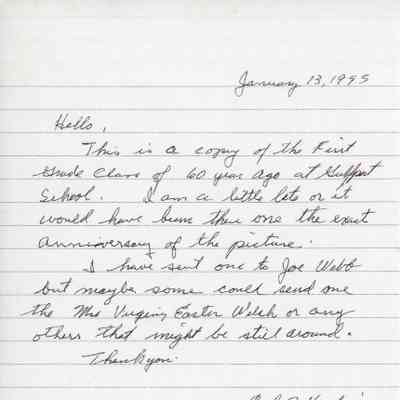 January 13, 1995
Hello,
This is a copy of the First
Grade Class of 60 year ago at Gulfport
School. I am a little late or it
would have been there one the exact
anniversary of the picture.
I have sent one to Joe Webb
but maybe some could send one
the Mrs Virginia Easter Welsh or any
others that might be still around.
Thankyou.